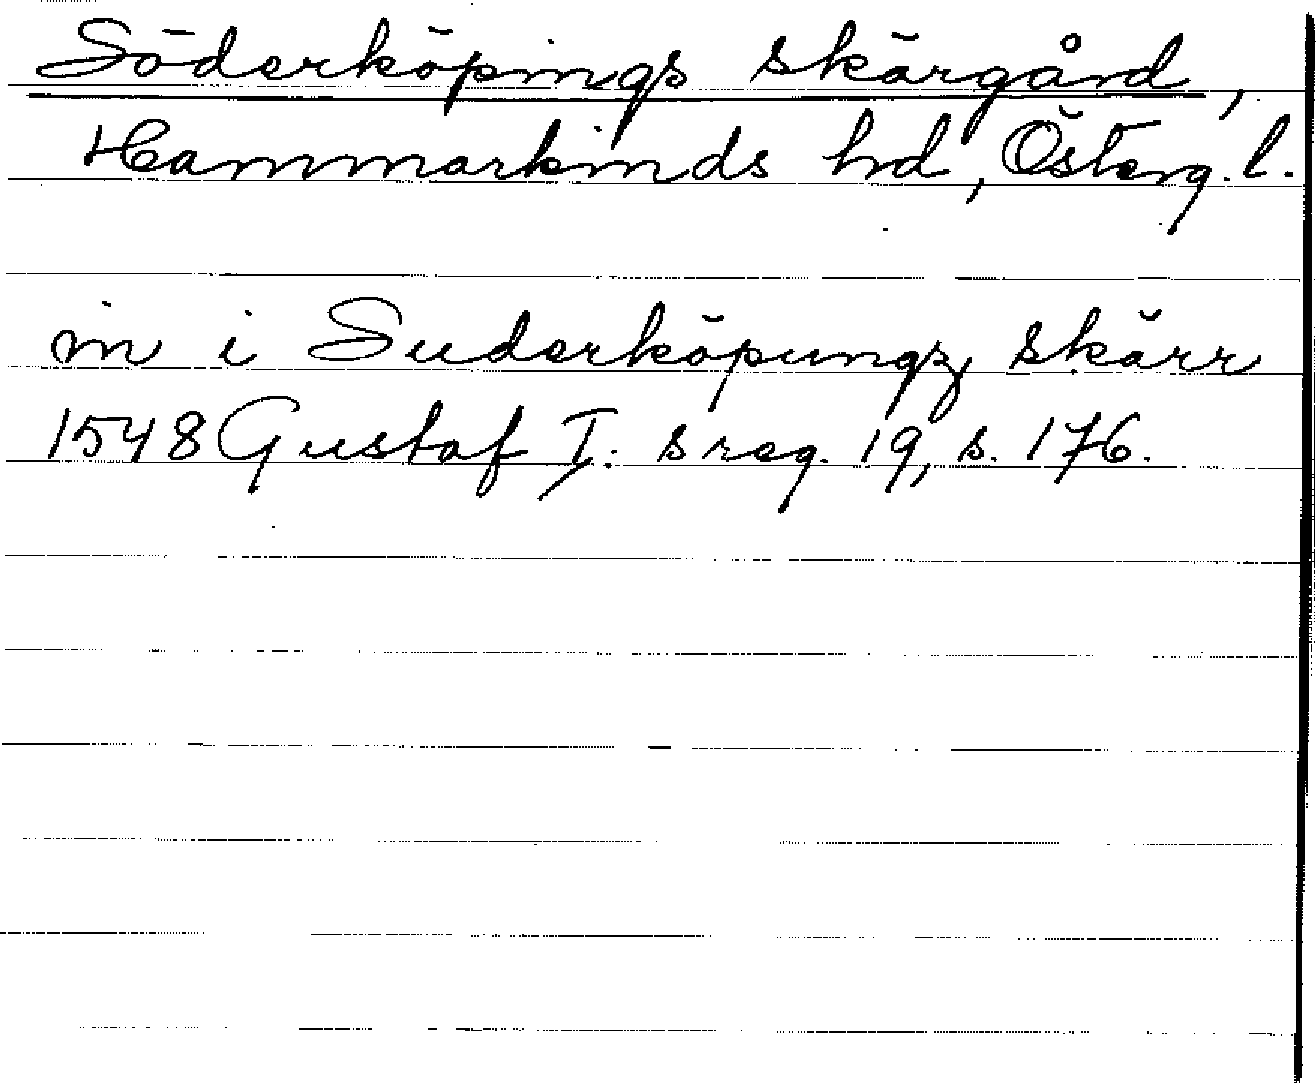 Söderköpings skärgård,
Hammarkinds hd, Österg. l.
in i Suderköpungz skärr
1548 Gustaf I: s reg. 19, s. 176.